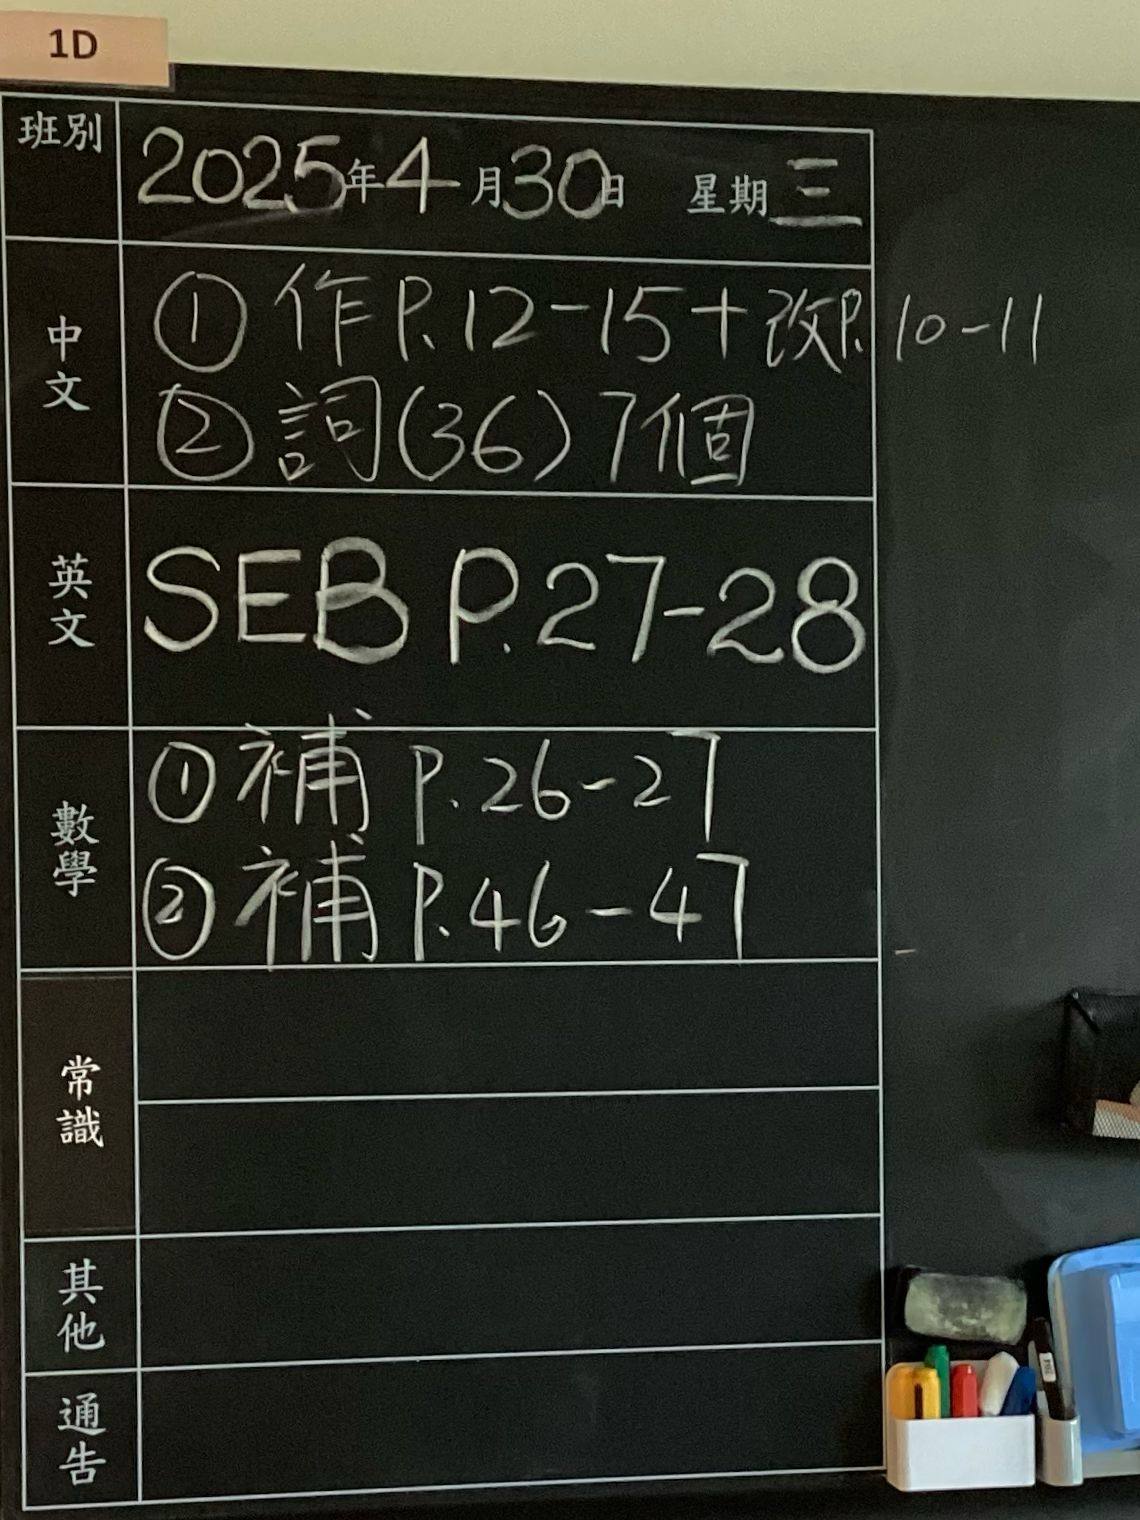 1D
班別 2025年4月30日 星期三
中文
① 作P.12-15+改P.10-11
② 詞(36)7個
英文
SEB P.27-28
數學
① 補 P.26-27
② 補 P.46-47
常識
其他
通告